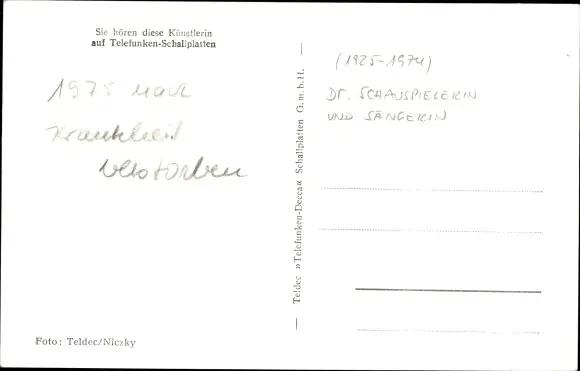 Sie hören diese Künstlerin
auf Telefunken-Schallplatten
1975 nach
Krankheit
verstorben
Foto: Teldec/Niczky
Teldec »Telefunken-Decca« Schallplatten G.m.b.H.
(1925-1974)
DT. SCHAUSPIELERIN
UND SÄNGERIN